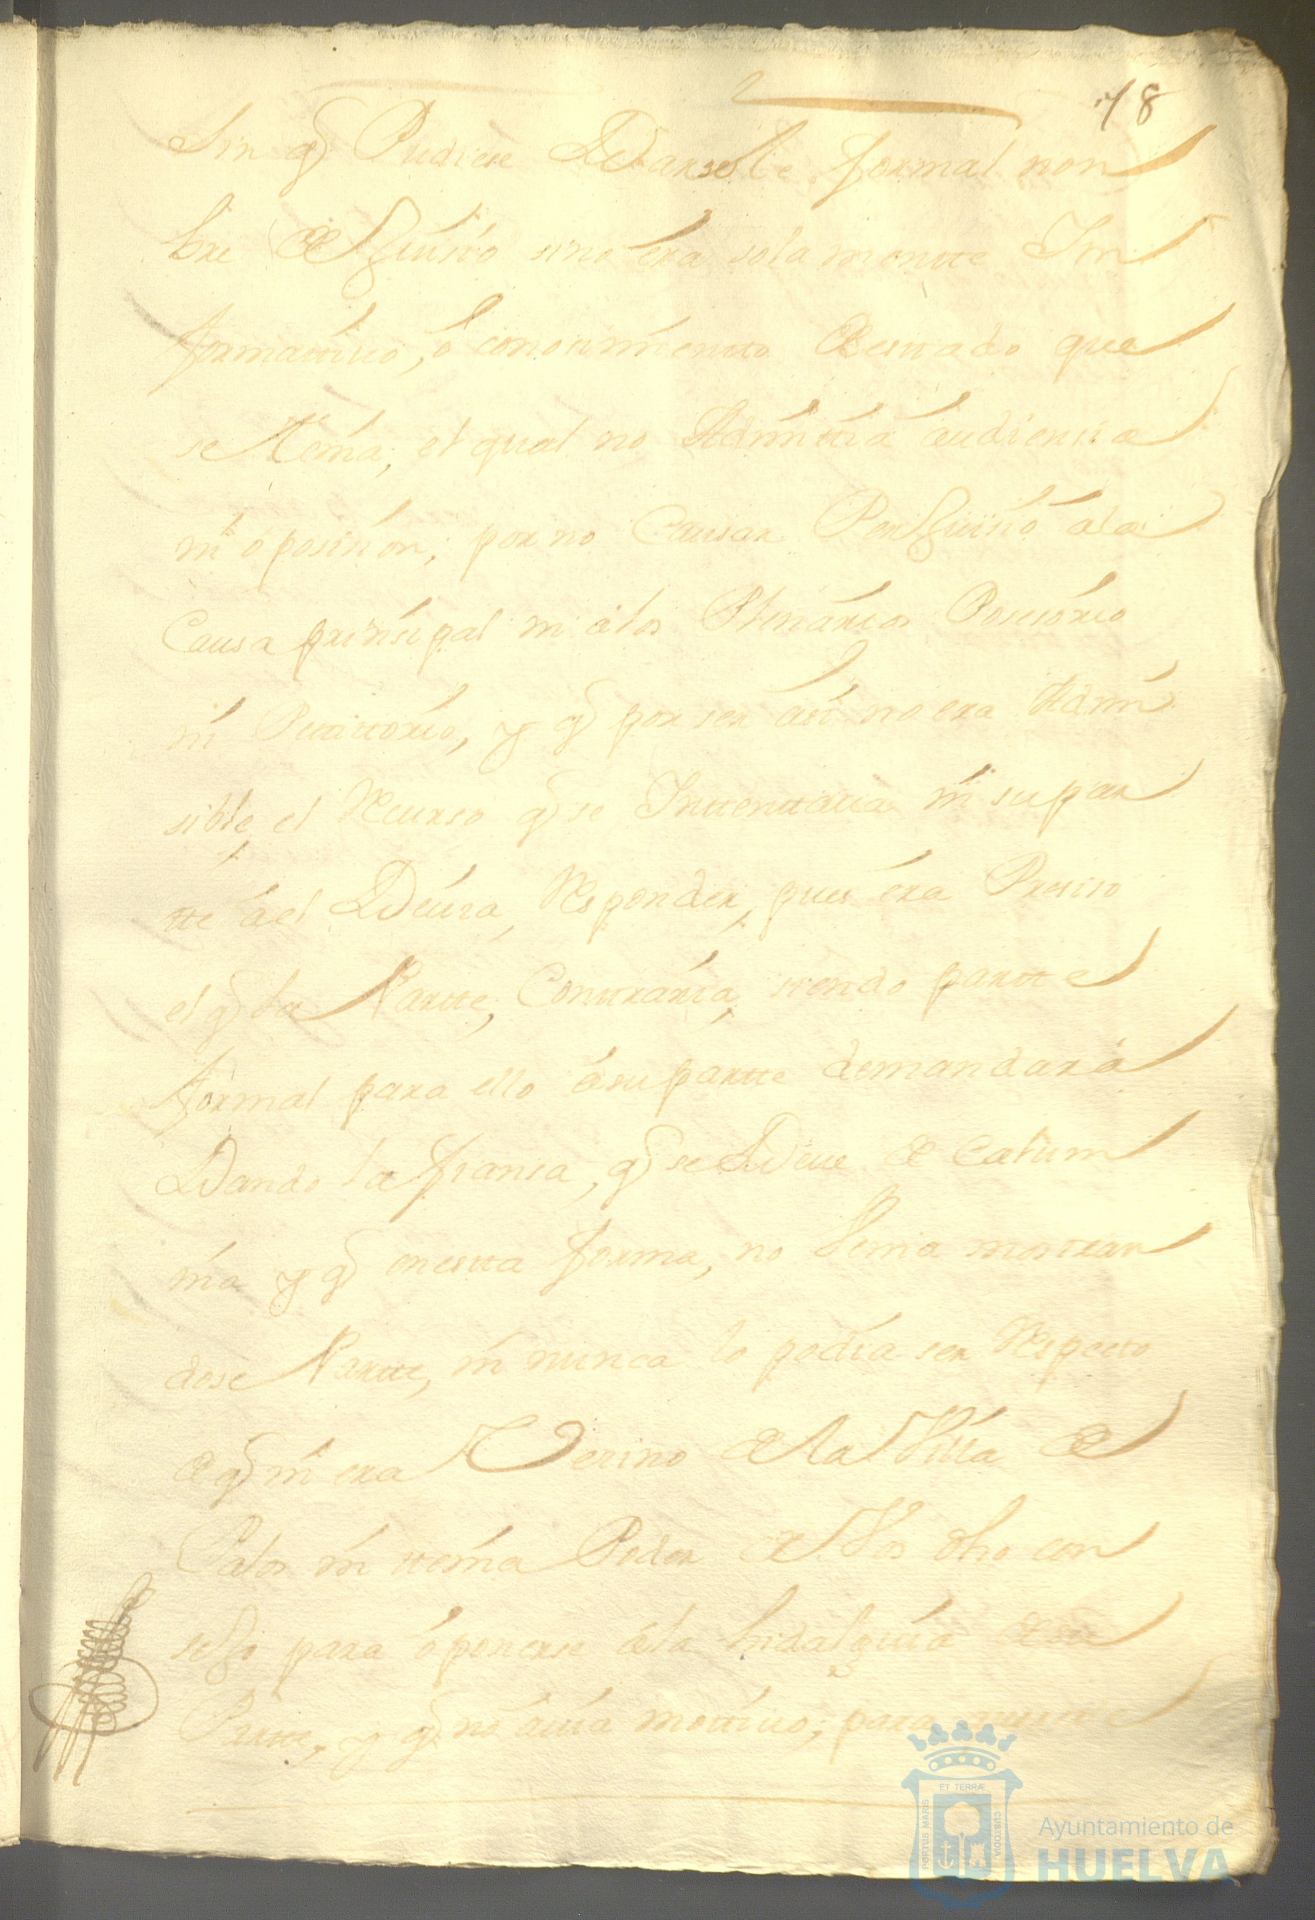 18
Sin q̃ Pudiese Ddarsele formal nom
bre de Jui͠sio sino éra sola mentte In
formattiuo, ó conosimientto de esttado que
se ttenia, el qual no Admitia audiensia
ni oposision, por no Causar Perjuisio ala
Causa prinsipal ni álos Plenários Posesório
ni Petittório, y q̃ por ser asi no era Admi
sible el Recurso q̃ se Inttenttaua ni su par
tte áel Deuia, Responder, pues éra Presiso
el q̃ la Partte, Conttrária, siendo partte
formal para ello ásu partte demandará
Dando la fiansa, q̃ se Deue de calum
nia y q̃ en estta forma, no Venia mostran
dose Partte, ni nunca lo podia ser Respectto
de q̃ ni era Vezino de la Villa de
Palos ni ttenia Poder de Vos dho con
sejo para óponerse ála hidalguia de su
Partte, y q̃ no áuia mottiuo, para
ET TERRÆ
PORTUS MARIS
CUSTODIA
Ayuntamiento de
HUELVA